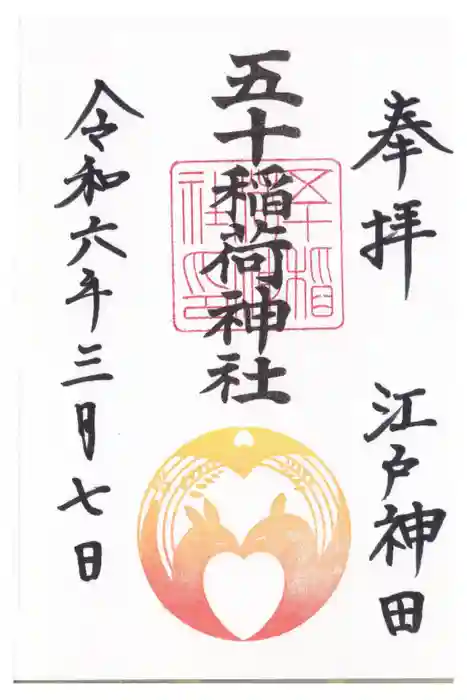 奉拝 江戸神田
五十稲荷神社
令和六年三月七日